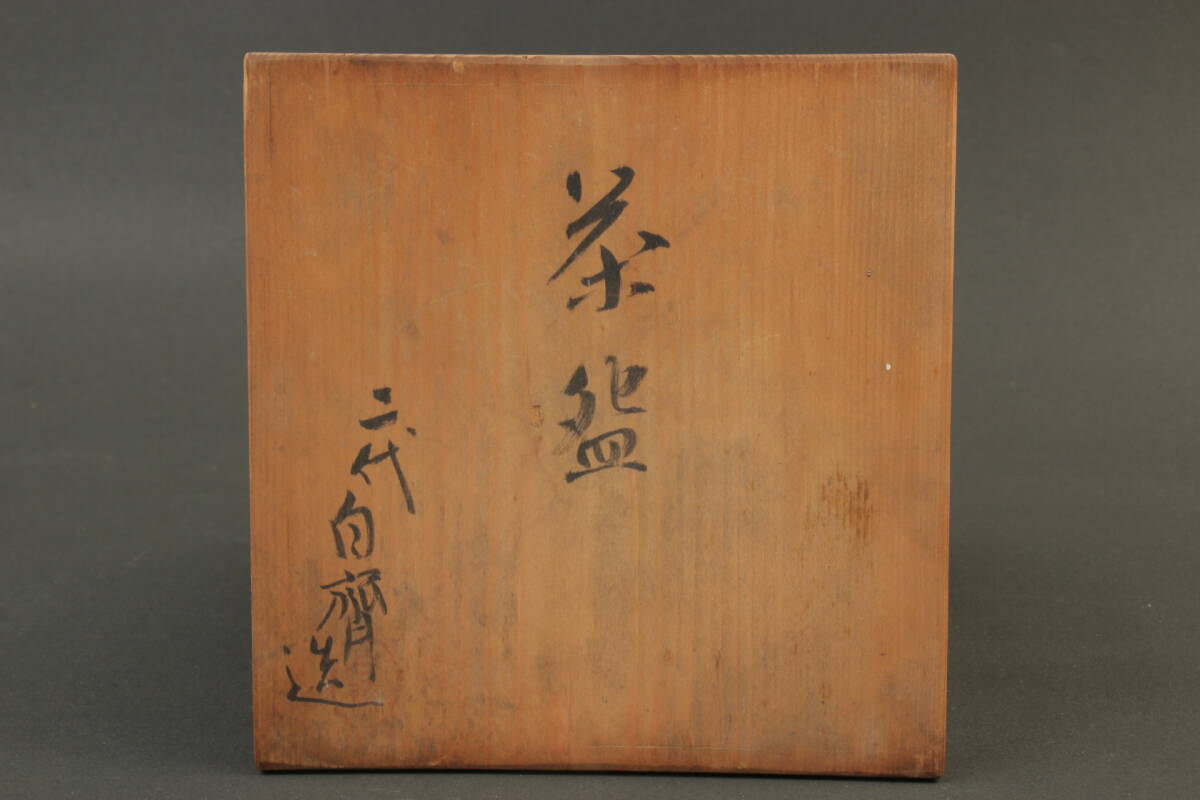 茶盌
二代白齋造